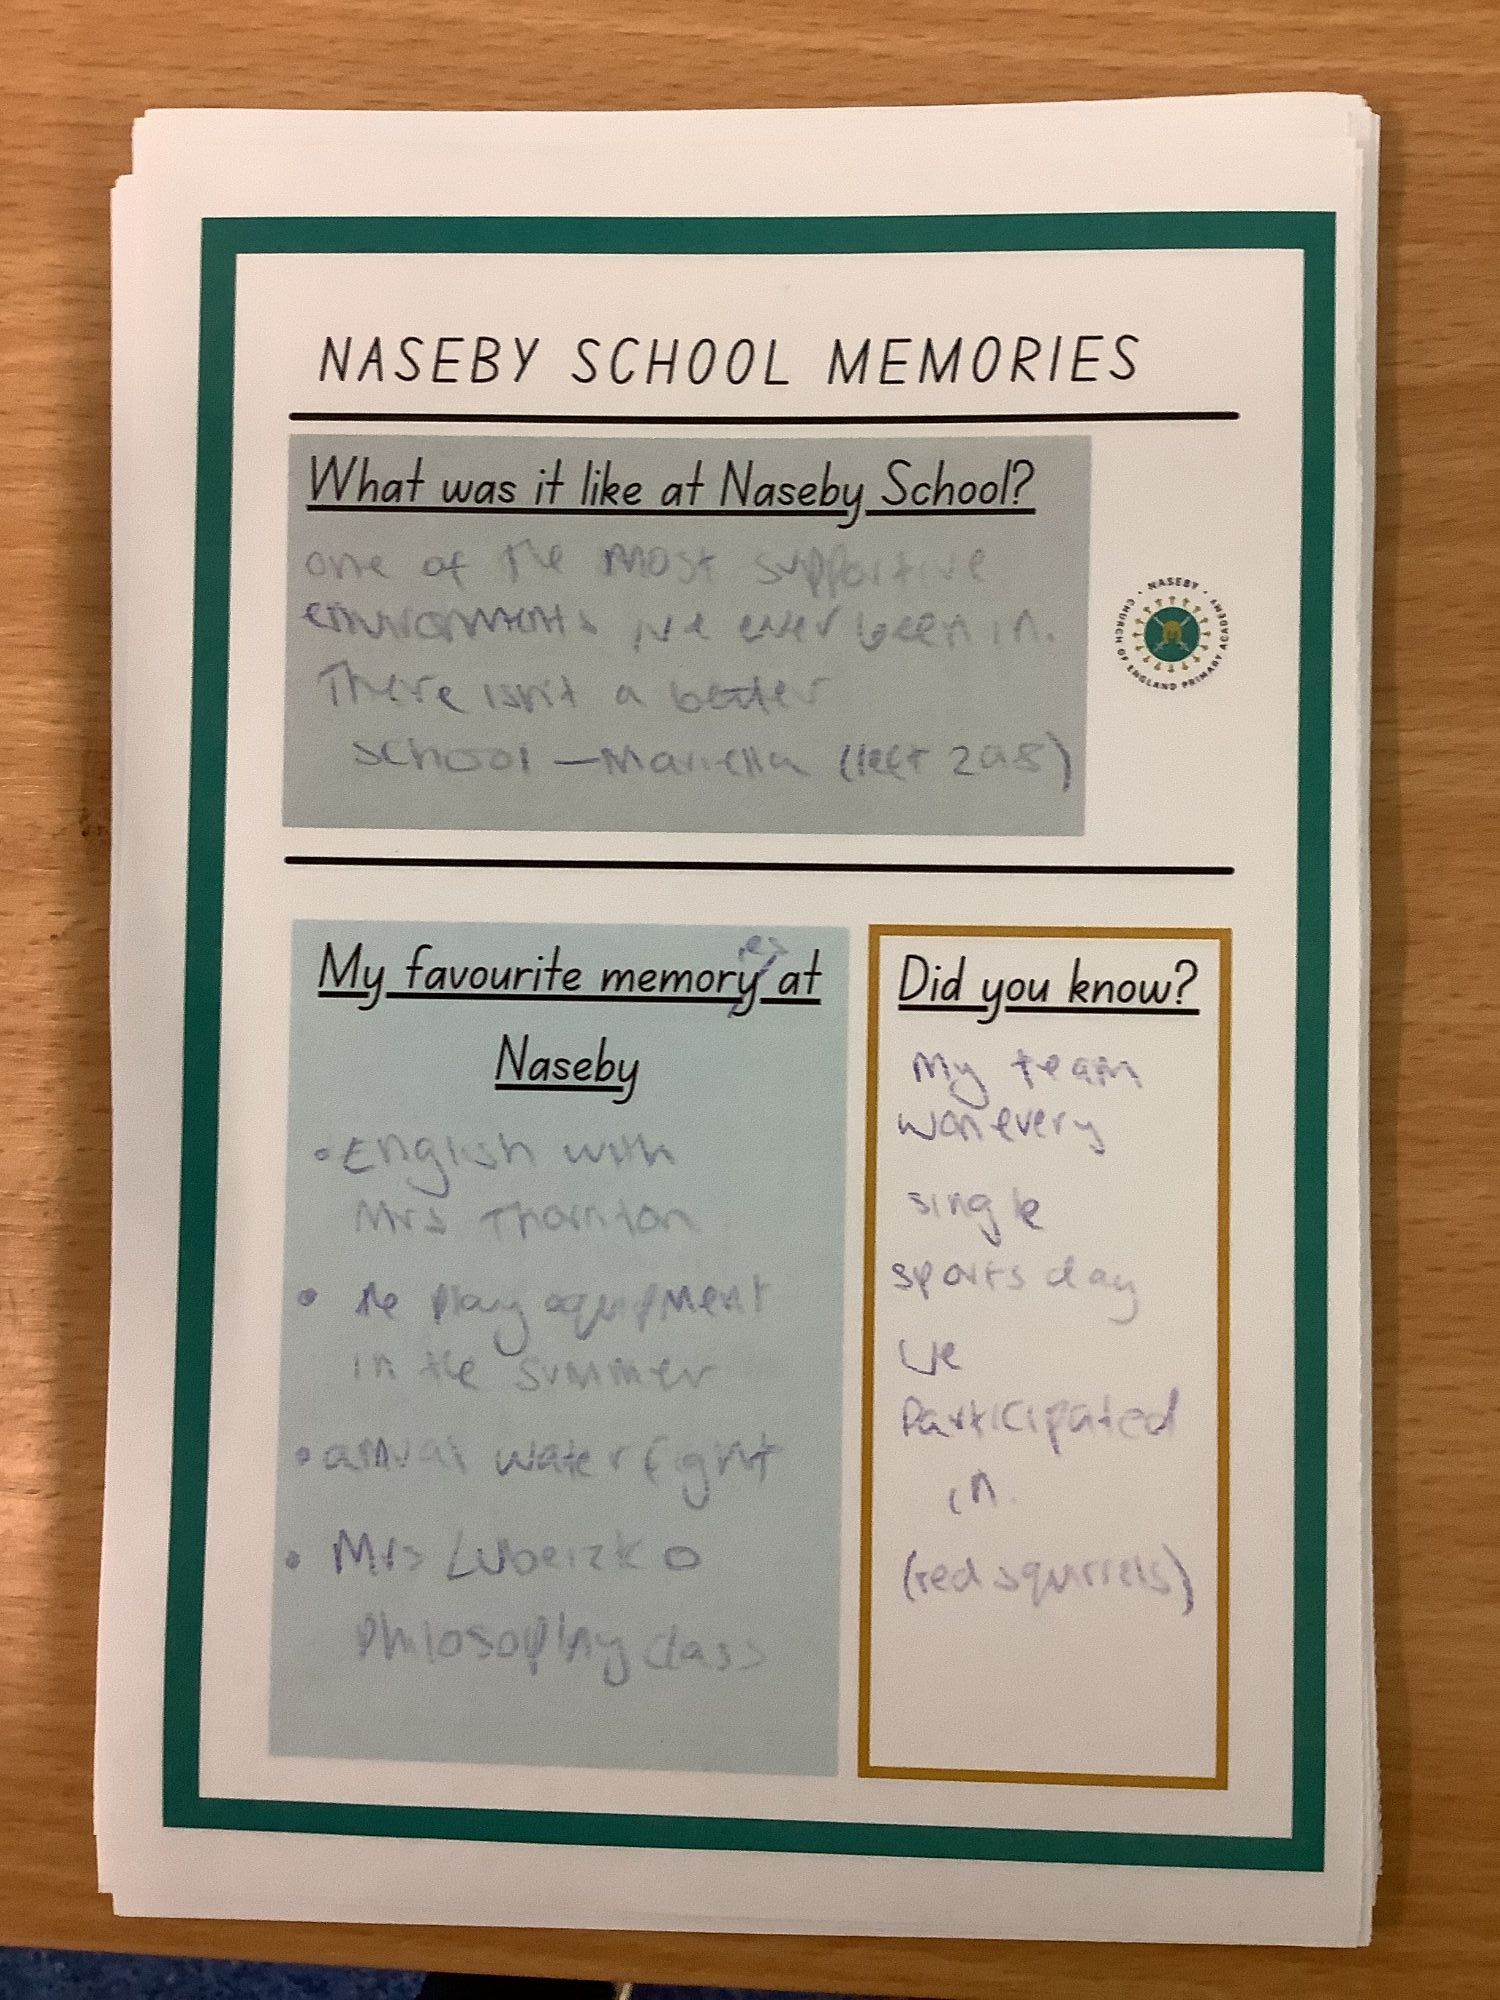 NASEBY SCHOOL MEMORIES
What was it like at Naseby School?
one of the most supportive
environments ive ever been in.
There isn't a better
school – Mariella (left 2018)
NASEBY • CHURCH OF ENGLAND PRIMARY ACADEMY •
My favourite memoryies at
Naseby
• English with
Mrs Thornton
• the play equipment
in the summer
• annual water fight
• Mrs Lubeizko
Philosophy class
Did you know?
My team
won every
single
sports day
we
Participated
in.
(red squirrels)